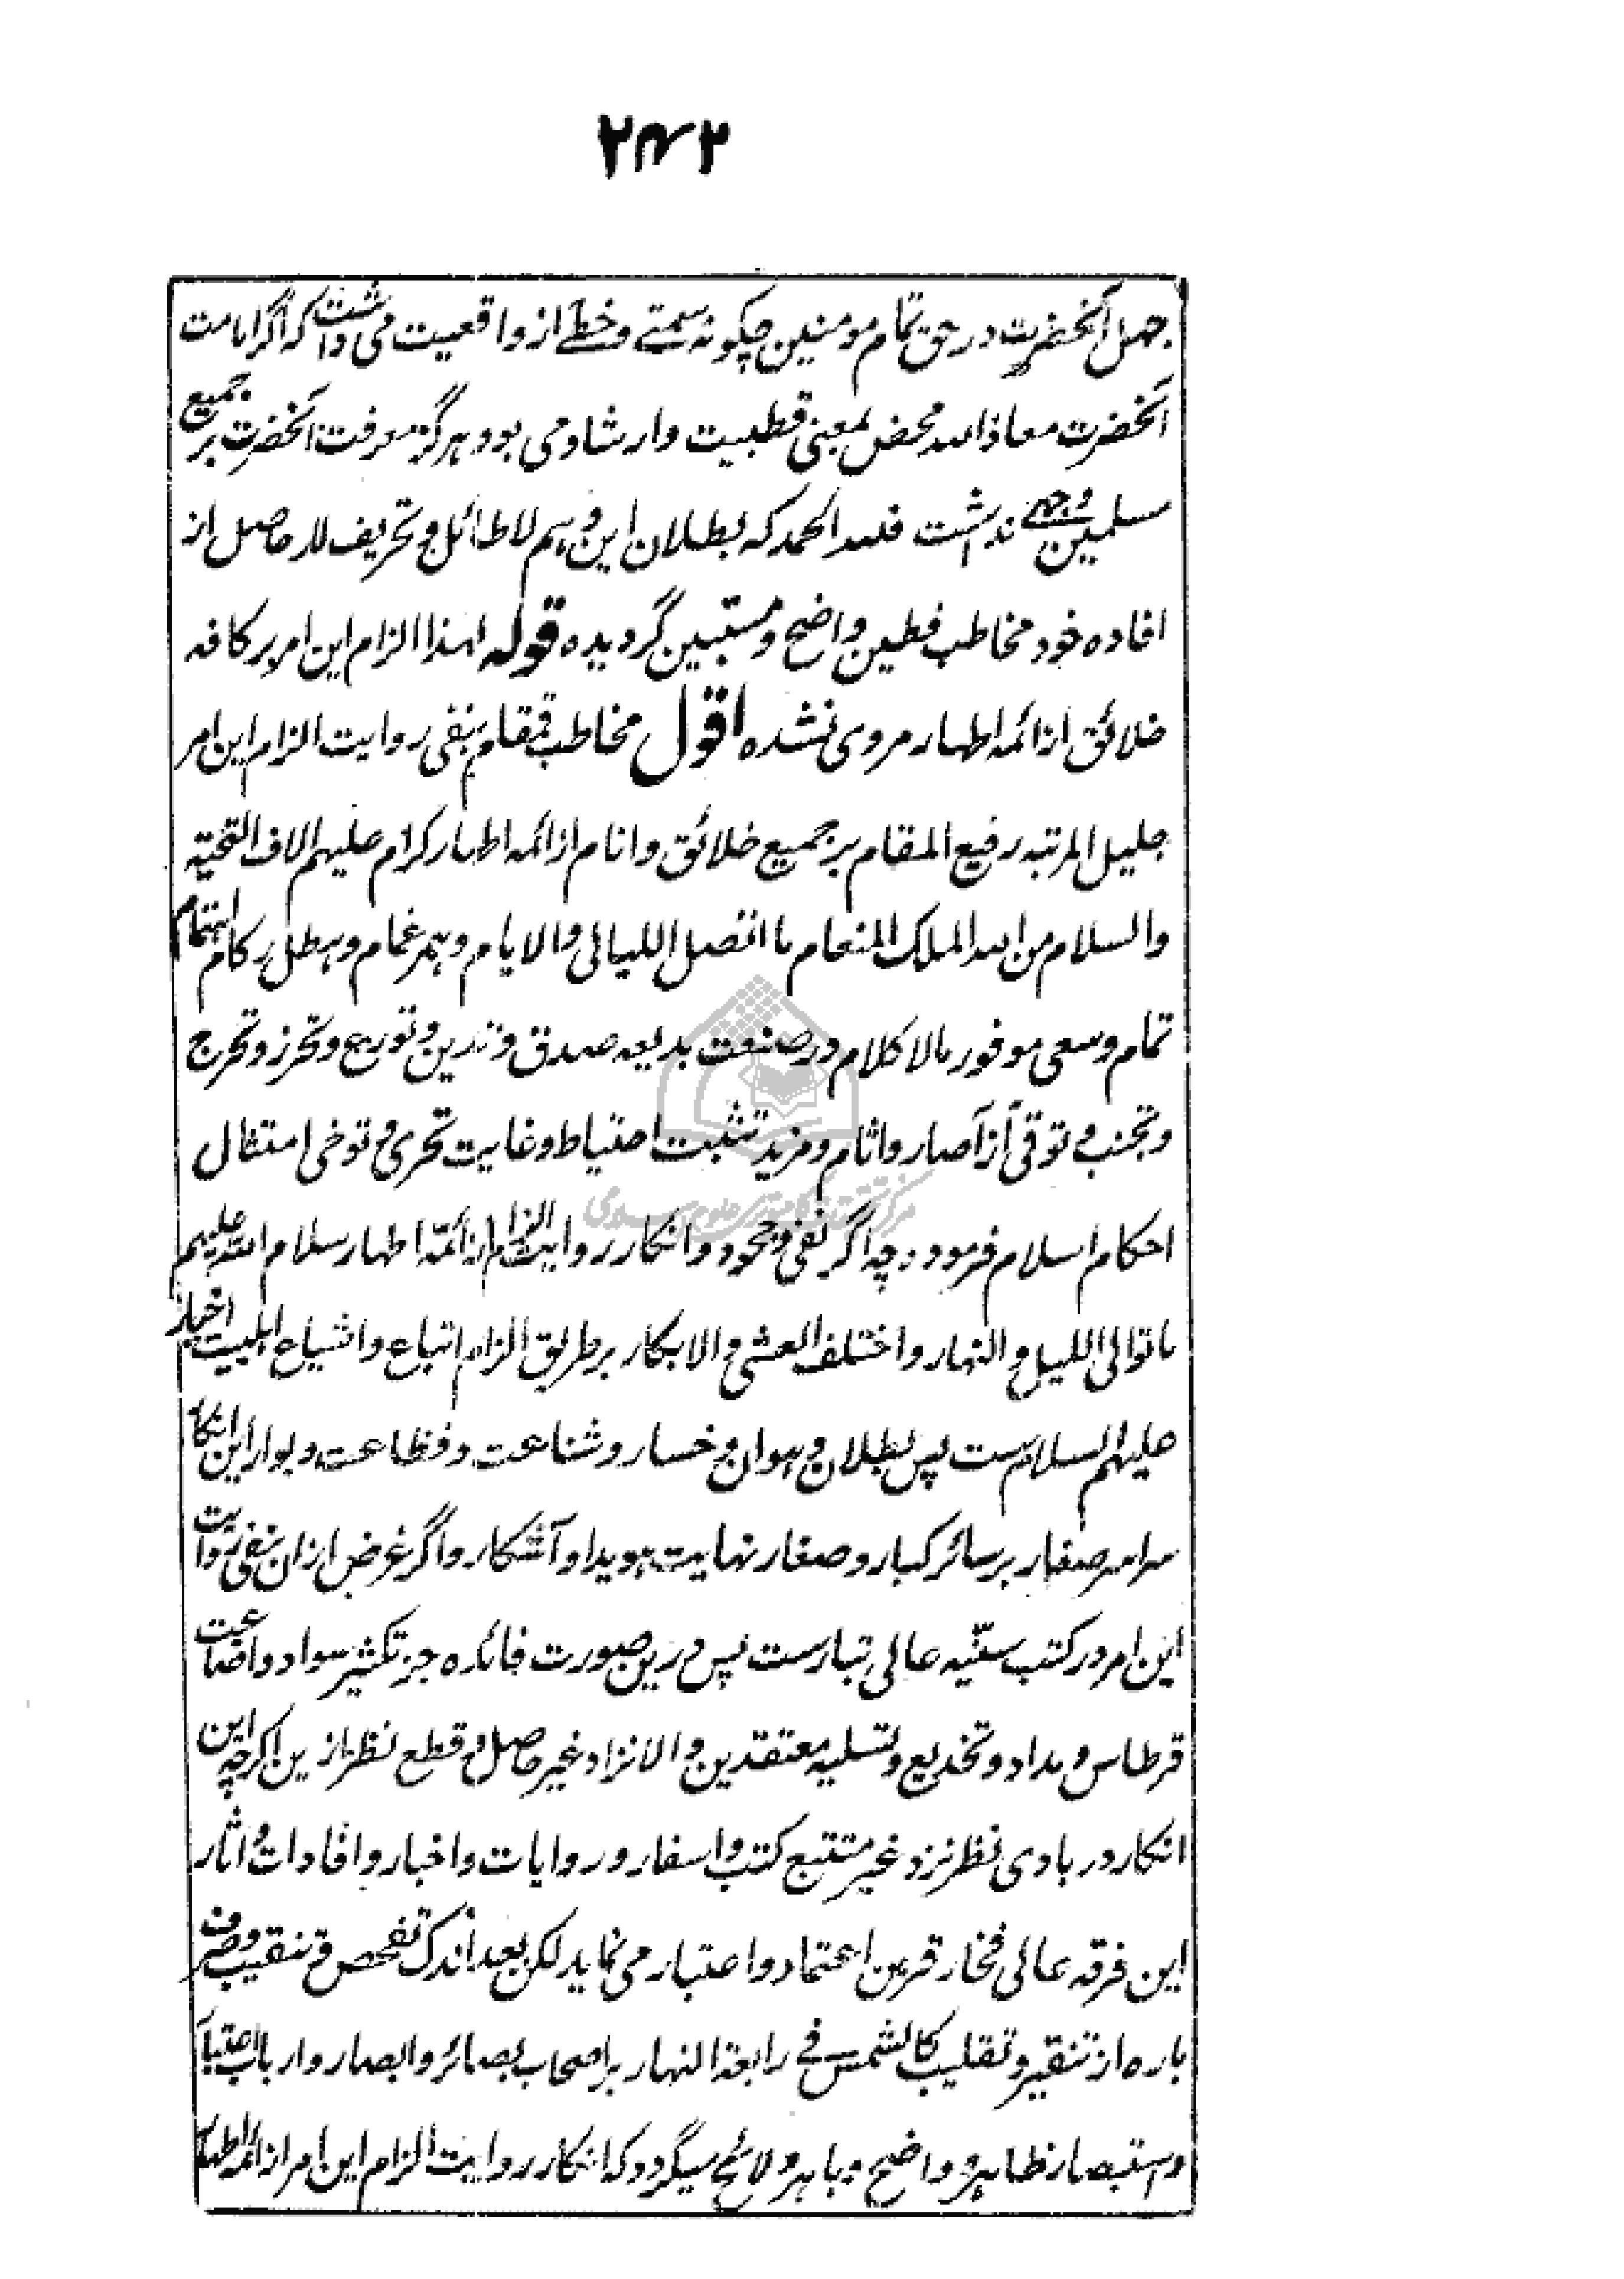 ۲۴۲
جهل آنحضرت در حق تمام مومنین چگونه سمتے و خطے از واقعیت می داشت که اگر امامت
آنحضرت معاذ الله محض بمعنی قطبیت و ارشاد می بود هرگز معرفت آنحضرت بر جمیع
مسلمین وجهے نداشت فلله الحمد که بطلان این وهم لا طائل و تحریف لا حاصل از
افاده خود مخاطب فطین واضح و مستبین گردیده قوله لهذا الزام این امر بر کافه
خلائق از ائمه اطهار مروی نشده اقول مخاطب قمقام بنفی روایت الزام این امر
جلیل المرتبه رفیع المقام بر جمیع خلائق و انام از ائمه اطهار کرام علیهم الاف التحیة
والسلام من الله الملک المنعام ما اتصل اللیالی والایام و همر غمام و هطل رکام اهتمام
تمام و سعی موفور مالا کلام در صنعت بدیعه صدق و تدین و تورع و تحرز و تحرج
و تجنب و توقی از آصار و اثام و مزید تثبت احتیاط و غایت تحری و توخی امتثال
احکام اسلام فرموده چه اگر نفی و جحود و انکار روایت الزام از ائمّه اطهار سلام الله علیهم
ما توالی اللیل و النهار و اختلف العشی و الابکار بر طریق الزام اتباع و اشیاع اهلبیت اخیار
علیهم السلامست پس بطلان و هوان و خسار و شناعت و فظاعت و بوار این انکار
سراسر صغار بر سائر کبار و صغار نهایت هویدا و آشکار و اگر غرض ازان نفی روایت
این امر در کتب سنّیه عالی تبارست پس درین صورت فائده جز تکثیر سواد و اضاعت
قرطاس و مداد و تخدیع و تسلیه معتقدین و الانژاد غیر حاصل و قطع نظر ازین اگرچه این
انکار در بادی نظر نزد غیر متتبع کتب و اسفار و روایات و اخبار و افادات و اثار
این فرقه عالی فخار قرین اعتماد و اعتبار می نماید لکن بعد اندک تفحص و تنقیب و صرف
باره از تنقیر و تقلیب کالشمس فے رابعة النهار بر اصحاب بصائر و ابصار و ارباب اعتبار
و استبصار ظاهر و واضح و باهر و لائح میگردد که انکار روایت الزام این امر از ائمه اطهار